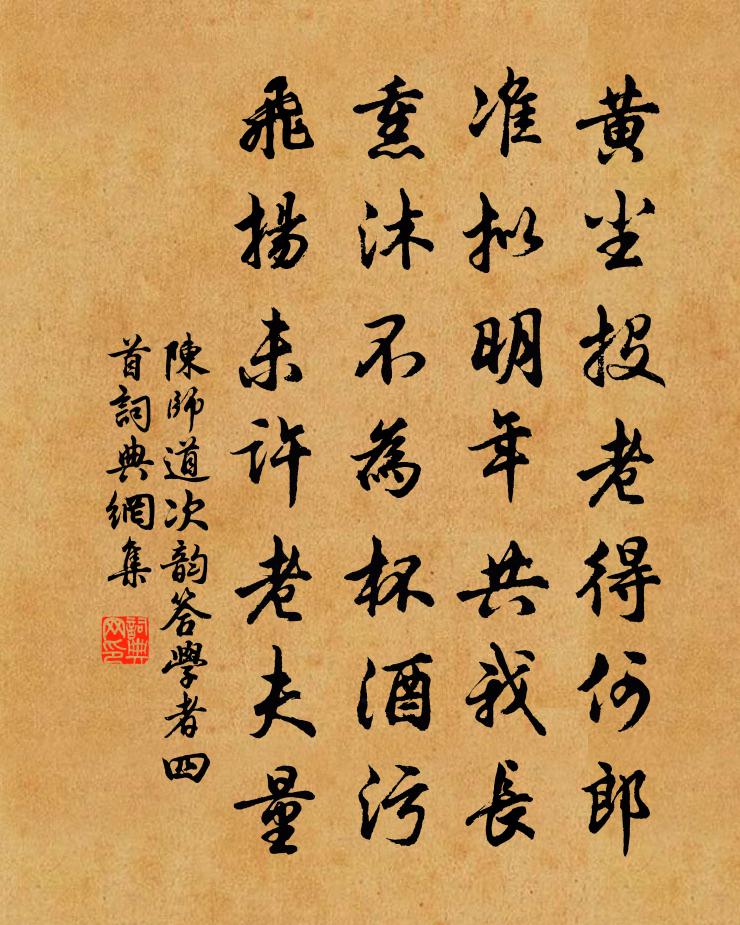 黄尘投老得何郎
准拟明年共我長
熏沐不為杯酒污
飛揚未許老夫量
陳師道次韵答學者四
首詞典網集
詞典網印